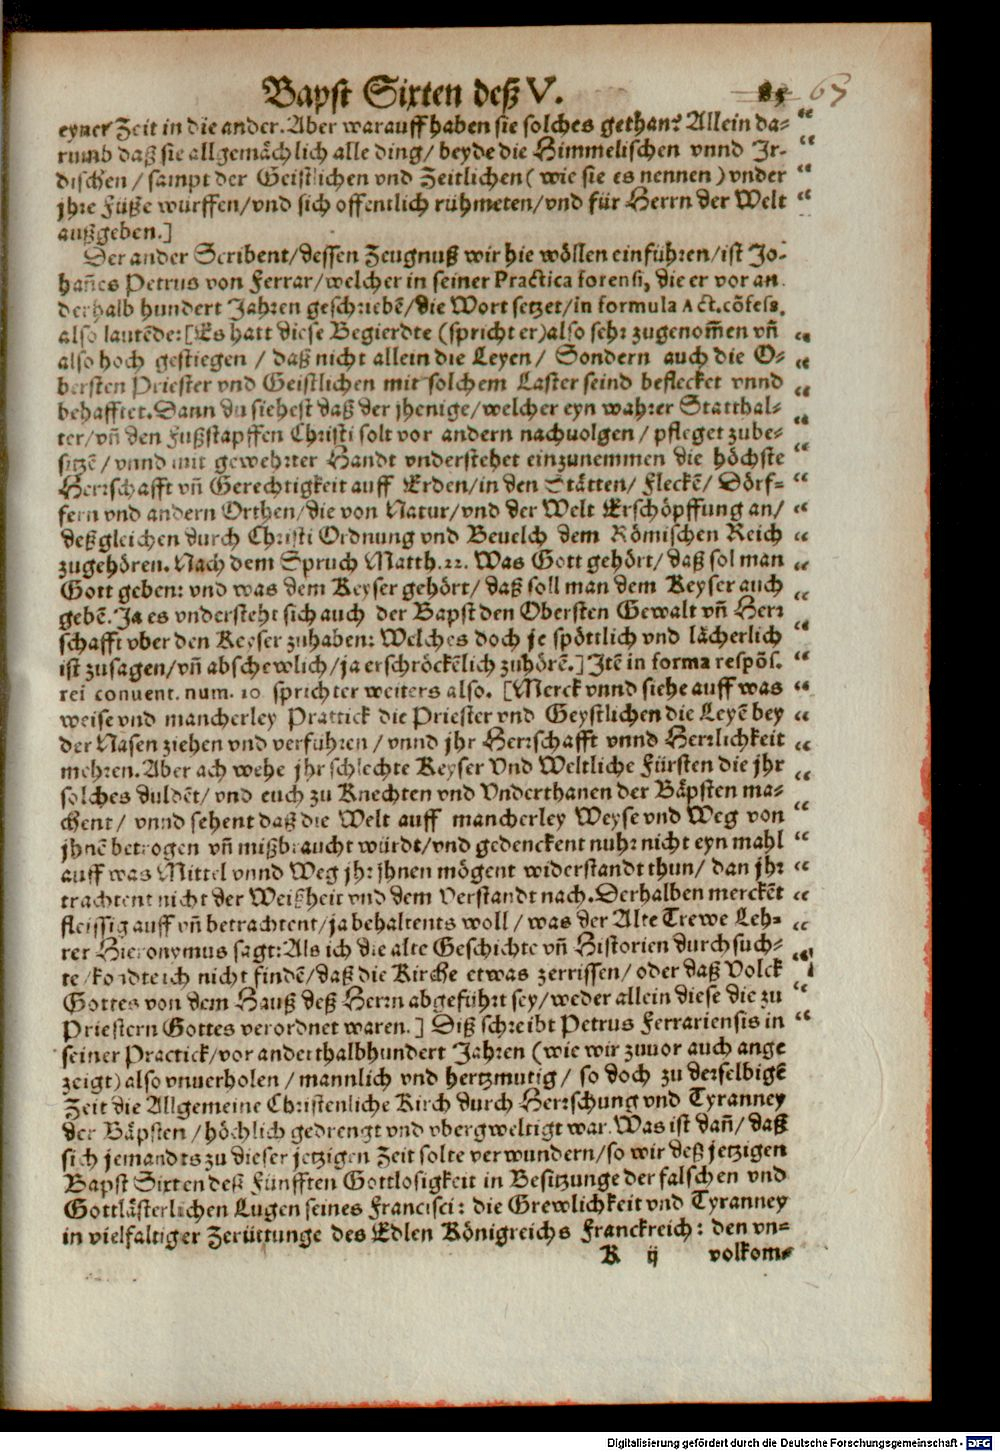 Bapst Sixten deß V. 85 67
eyner Zeit in die ander. Aber warauff haben sie solches gethan? Allein da⸗ “
rumb daß sie allgemächlich alle ding/ beyde die Himmelischen vnnd Jr⸗ “
dischen/ sampt der Geistlichen vnd Zeitlichen (wie sie es nennen) vnder “
jhre Füße würffen/ vnd sich offentlich rühmeten/ vnd für Herrn der Welt “
außgeben.]
Der ander Scribent/ dessen Zeugnuß wir hie wöllen einführen/ ist Jo⸗
hañes Petrus von Ferrar/ welcher in seiner Practica forensi, die er vor an
derhalb hundert Jahren geschriebẽ/ die Wort setzet/ in formula Act. cõfess.
also lautẽde: [Es hatt diese Begierdte (spricht er) also sehr zugenom̃en vñ “
also hoch gestiegen/ daß nicht allein die Leyen/ Sondern auch die O⸗ “
bersten Priester vnd Geistlichen mit solchem Laster seind beflecket vnnd “
behafftet. Dann du siehest daß der jhenige/ welcher eyn wahrer Statthal⸗ “
ter/ vñ den Fußstapffen Christi solt vor andern nachuolgen/ pfleget zube⸗ “
sitzẽ/ vnnd mit gewehrter Handt vnderstehet einzunemmen die höchste “
Herrschafft vñ Gerechtigkeit auff Erden/ in den Stätten/ Fleckẽ/ Dörf⸗ “
fern vnd andern Orthen/ die von Natur/ vnd der Welt Erschöpffung an/ “
deßgleichen durch Christi Ordnung vnd Beuelch dem Römischen Reich “
zugehören. Nach dem Spruch Matth. 22. Was Gott gehört/ daß sol man “
Gott geben: vnd was dem Keyser gehört/ daß soll man dem Keyser auch “
gebẽ. Ja es vndersteht sich auch der Bapst den Obersten Gewalt vñ Herr “
schafft vber den Keyser zuhaben: Welches doch je spöttlich vnd lächerlich “
ist zusagen/ vñ abschewlich/ ja erschröckẽlich zuhörẽ.] Jtẽ in forma respõs. “
rei conuent. num. 10 spricht er weiters also. [Merck vnnd siehe auff was “
weise vnd mancherley Prattick die Priester vnd Geystlichen die Leyẽ bey “
der Nasen ziehen vnd verführen/ vnnd jhr Herrschafft vnnd Herrlichkeit “
mehren. Aber ach wehe jhr schlechte Keyser Vnd Weltliche Fürsten die jhr “
solches duldẽt/ vnd euch zu Knechten vnd Vnderthanen der Bäpsten ma⸗ “
chent/ vnnd sehent daß die Welt auff mancherley Weyse vnd Weg von “
jhnẽ betrogen vñ mißbraucht würdt/ vnd gedenckent nuhr nicht eyn mahl “
auff was Mittel vnnd Weg jhr jhnen mögent widerstandt thun/ dan jhr “
trachtent nicht der Weißheit vnd dem Verstandt nach. Derhalben merckẽt “
fleissig auff vñ betrachtent/ ja behaltents woll/ was der Alte Trewe Leh⸗ “
rer Hieronymus sagt: Als ich die alte Geschichte vñ Historien durchsuch⸗ “
te/ kondte ich nicht findẽ/ daß die Kirche etwas zerrissen/ oder daß Volck “
Gottes von dem Hauß deß Herrn abgeführt sey/ weder allein diese die zu “
Priestern Gottes verordnet waren.] Diß schreibt Petrus Ferrariensis in “
seiner Practick/ vor anderthalbhundert Jahren (wie wir zuuor auch ange
zeigt) also vnuerholen/ mannlich vnd hertzmutig/ so doch zu derselbigẽ
Zeit die Allgemeine Christenliche Kirch durch Herrschung vnd Tyranney
der Bäpsten/ höchlich gedrengt vnd vbergweltigt war. Was ist dañ/ daß
sich jemandts zu dieser jetzigen Zeit solte verwundern/ so wir deß jetzigen
Bapst Sixten deß Fünfften Gottlosigkeit in Besitzunge der falschen vnd
Gottlästerlichen Lugen seines Francisci: die Grewlichkeit vnd Tyranney
in vielfaltiger Zerüttunge des Edlen Königreichs Franckreich: den vn⸗
K ij volkom⸗
Digitalisierung gefördert durch die Deutsche Forschungsgemeinschaft - DFG